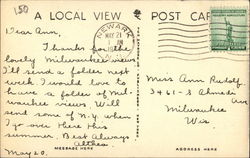 150
A LOCAL VIEW
POST CAR
NEWARK
MAY 21
Dear Ann,
Thanks for the
lovely Milwaukee views.
I'll send a folder next
week. I would love to
have a folder of Mil-
waukee views. Will
send some of N.Y. when
I go over there this
summer. Best Always
Althea.
May 20.
MESSAGE HERE
Miss Ann Rudolf
3461-S
Milwaukee
Wis
ADDRESS HERE